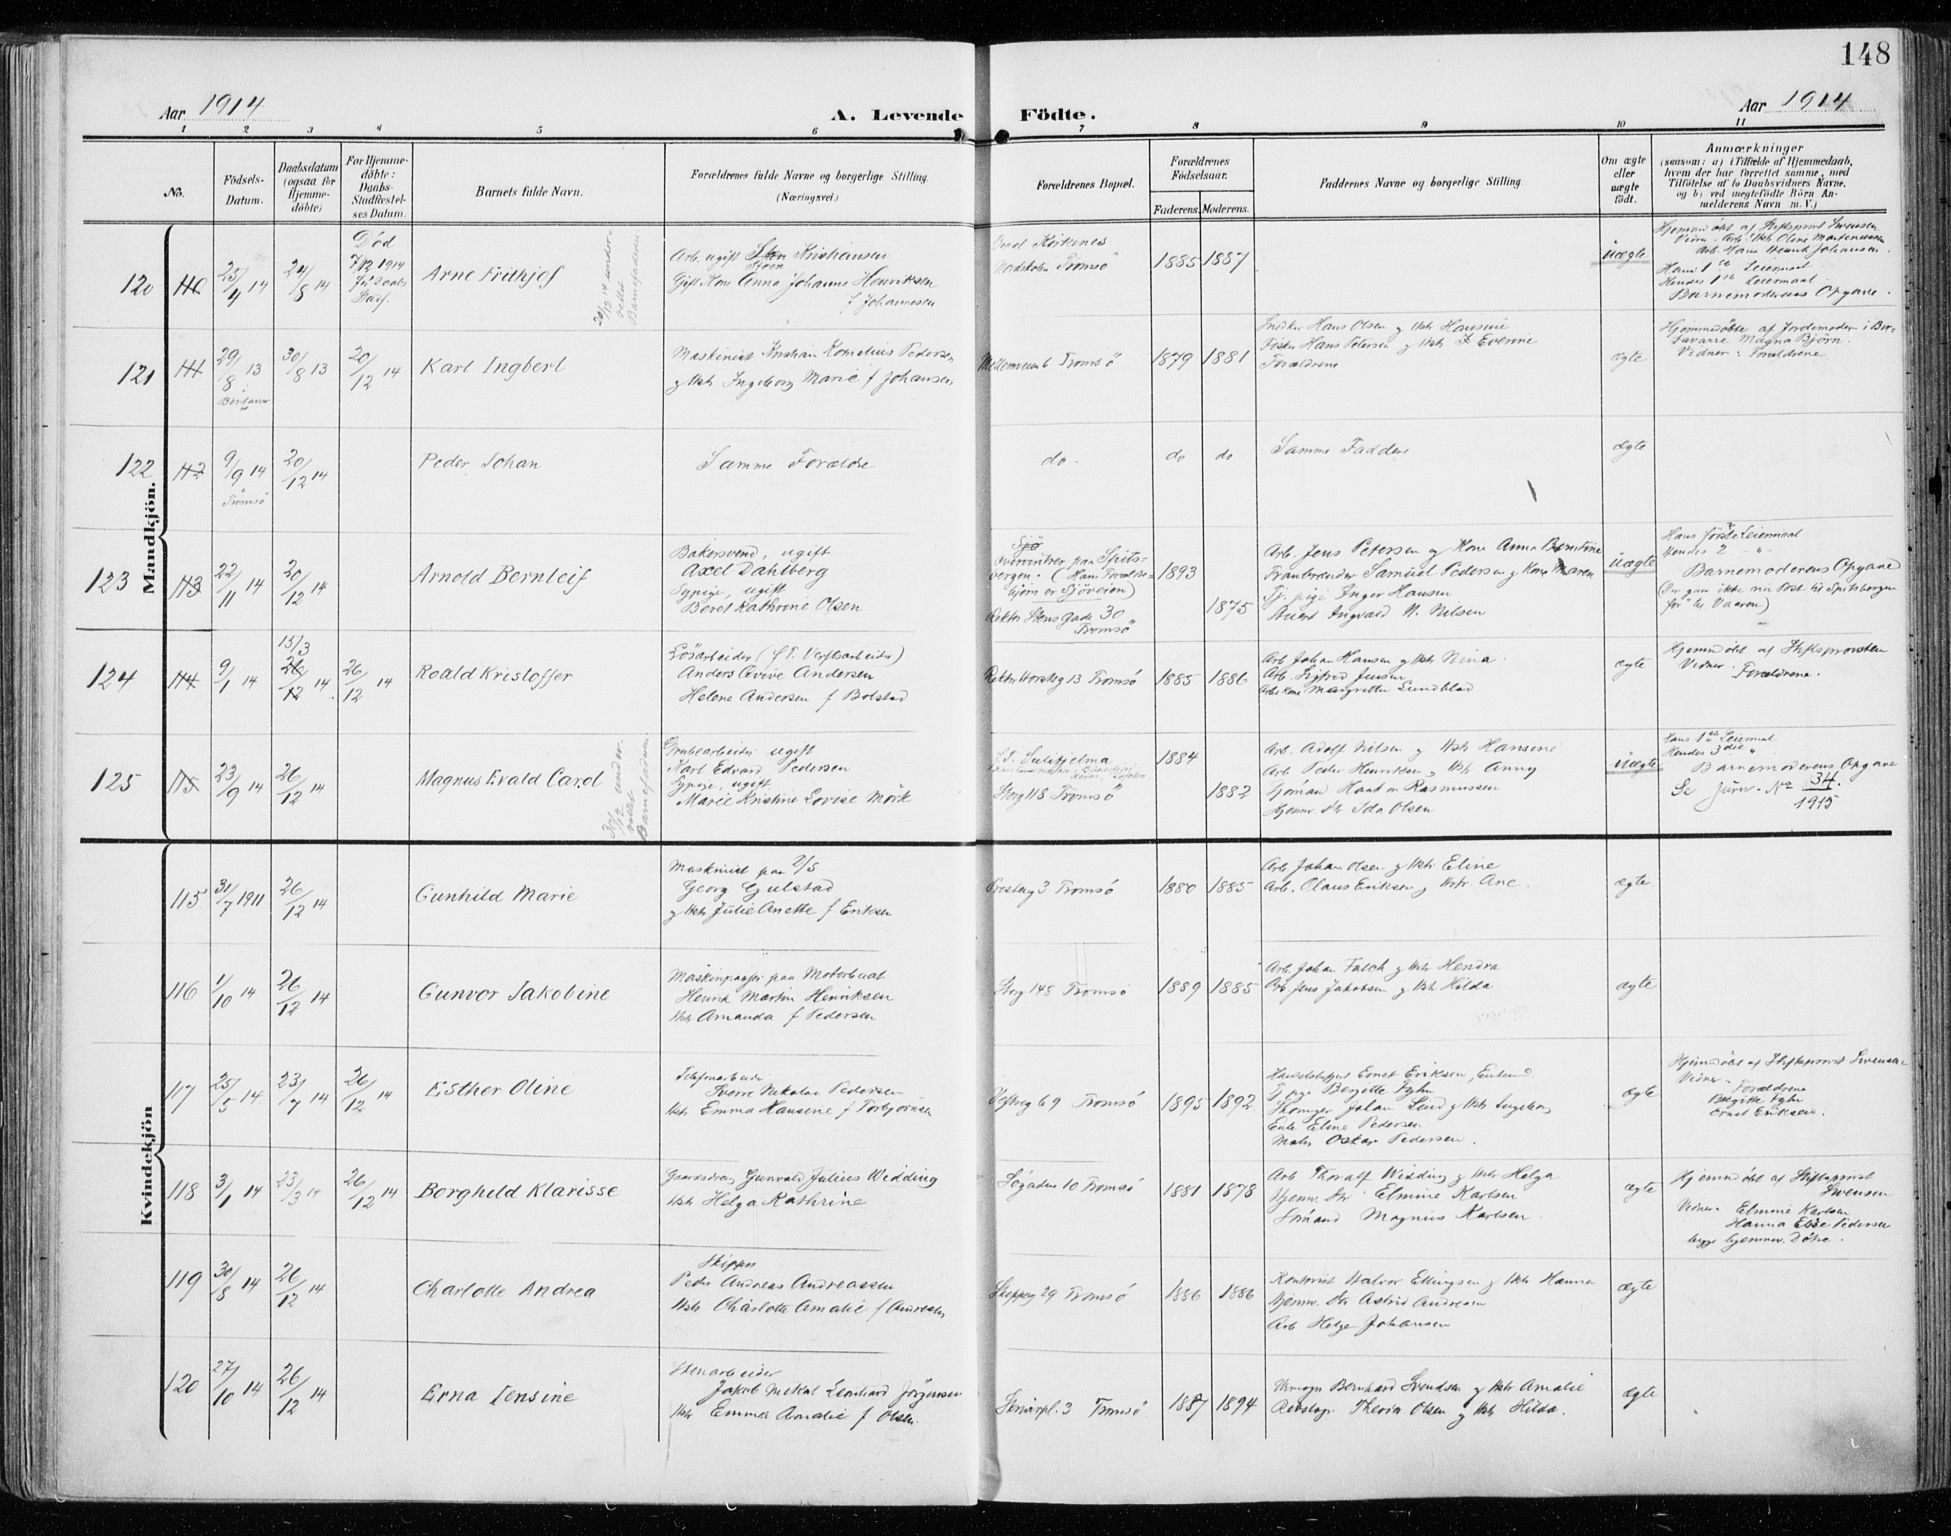 148
Aar 1914
A. Levende Födte.
Aar 1914
1 2 3 4 5 6 7 8 9 10 11
No.
Födsels-Datum.
Daabsdatum (ogsaa for Hjemme-döbte)
For Hjemme-döbte: Daabs-Stadfæstel-ses Datum.
Barnets fulde Navn.
Forældrenes fulde Navne og borgerlige Stilling.
(Næringsvei.)
Forældrenes Bopæl.
Forældrenes Födselsaar.
Faderens. Moderens.
Faddernes Navne og borgerlige Stilling.
Om ægte eller uægte födt.
Anmærkninger
(saasom: a) i Tilfælde af Hjemmedaab,
hvem der har forrettet samme, med
Tilföielse af to Daabsvidners Navne.
og b) ved uægtefödte Börn An-
melderens Navn m. V.)
Mandkjön.
120 25/4 14 24/8 14 Død 7/12 1914 Arne Frithjof
Arb. ugift Kristiansen
Gift Kone Anna Johanne Henriksen
f Johannesen
Kirkenes
Tromsö 1885 1887 uægte
Hjemmedöbt af Stiftsprovst Swensen
Barnemoderens Opgave.
121 29/8 13 30/8 13 20/12 14 Karl Ingbert
Maskinist Kristian Kornelius Pedersen
og Hstr Ingeborg Marie f Johansen
Mellemveien 6 Tromsö 1879 1881
Snedker Hans Olsen og Hstr Hansine
Fisker Hans Petersen og Hstr Evenine
Forældrene
ægte
Hjemmedöbte af Jordemoder i
Magna Björn.
Vidner: Forældrene
122 9/9 14 Tromsö 20/12 14 Peder Johan
Samme Forældre
do. do do Samme Faddere ægte
123 22/11 14 20/12 14 Arnold Bernleif
Bakersvend, ugift
Axel Dahlberg
Sypige, ugift
Beret Kathrine Olsen
overvintrer paa Spits-
bergen. (Hans Forældre-
hjem er Sjöveien)
Rektor Stens Gade 30
Tromsö
1893 1875
Arb. Jens Petersen og Kone Anna Berntine
Samuel Pedersen og Kone Maren
Tj. pige Inger Hansen
Ingvard N. Nilsen
uægte
Hans förste Leiermaal
Hendes 2 "
Barnemoderens Opgave
(Der gaar ikke nu Post til Spitsbergen
för til Vaaren)
124 9/1 14 15/3 26/12 14 26/12 14 Roald Kristoffer
Lösarbeider (f.T. Verftsarbeider)
Anders Andersen
Helene Andersen f Bolstad
13 Tromsö 1885 1886
Arb Johan Hansen og Hstr Nina.
Arb. Sigfred Jensen
Arb. Kone Margrethe Lundblad
ægte
Hjemmedöbt af Stiftsprovsten
Vidner: Forældrene.
125 23/9 14 26/12 14 Magnus Evald Carol
Grubearbeider ugift
Karl Edvard Pedersen
Sypige, ugift
Marie Kristine Lovise Mörk
f.T. Sulitjelma
Storg 118 Tromsö
1884 1882
Arb. Adolf Nilsen og Hstr Hansine
Arb. Peder Henriksen og Hstr Anny
Sjömand Haakon Rasmussen
Hjemv. Dtr Ida Olsen
uægte
Hans 1ste Leiermaal
Hendes 3die "
Barnemoderens Opgave
Se Jurn. No 34/1915
Kvindekjön
115 31/7 1911 26/12 14 Gunhild Marie
Maskinist paa D/S
Georg Gulstad
og Hstr Julie Anette f Eriksen
3 Tromsö 1880 1885
Arb. Johan Olsen og Hstr Eline
Arb. Olaus Eriksen og Hstr. Ane.
ægte
116 1/10 14 26/12 14 Gunvor Jakobine
Maskinpasser paa Motorbaat
Henrik Martin Henriksen
Hstr Amanda f Pedersen
Storg 148 Tromsö 1889 1885
Arb. Johan Falch og Hstr Hendra
Arb Jens Jakobsen og Hstr Hilda
ægte
117 25/5 14 23/7 14 26/12 14 Esther Oline
Telefonarbeider
Sverre Nikolai Pedersen
Hstr Emma Hansine f Torbjörnsen
69 Tromsö 1895 1892
Ernst Eriksen, Enkem.
Tj. pige Bergitte
Johan Lind og Hstr Ingeborg
Enke Eline Pedersen
Maler Oskar Pedersen.
ægte
Hjemmedöbt af Stiftsprovst Swensen
Vidner. Forældrene
Bergitte
Ernst Eriksen.
118 3/1 14 23/3 14 26/12 14 Borghild Klarisse
Gaardsdreng Gunvald Julius Widding
Hstr Helga Kathrine
Søgaden 10 Tromsö 1881 1878
Arb Thoralf Widding og Hstr Helga
Hjemv. Dtr Elmine Karlsen
Sömand Magnus Karlsen
ægte
Hjemmedöbt af Stiftsprovst
Swensen
Vidner. Elmine Karlsen
Hanna Elise Pedersen
begge hjemmev. Dötre.
119 30/8 14 26/12 14 Charlotte Andrea
Skipper
Peder Andreas Andreassen
Hstr Charlotte Amalie f Andreasen
Skipperg 29 Tromsö 1886 1886
Kontorist Halvor Ellingsen og Hstr Hanna
Hjemv. Dtr Astrid Andresen
Arb Helge Johansen
ægte
120 27/10 14 26/12 14 Erna Jensine
Stenarbeider
Jakob Mekal Leonhard Jörgensen
Hstr Emma Amalie f Olsen
3 Tromsö 1887 1894
Bernhard Svendsen og Hstr Amalie
Rebslager Theodor Olsen og Hstr Hilda.
ægte